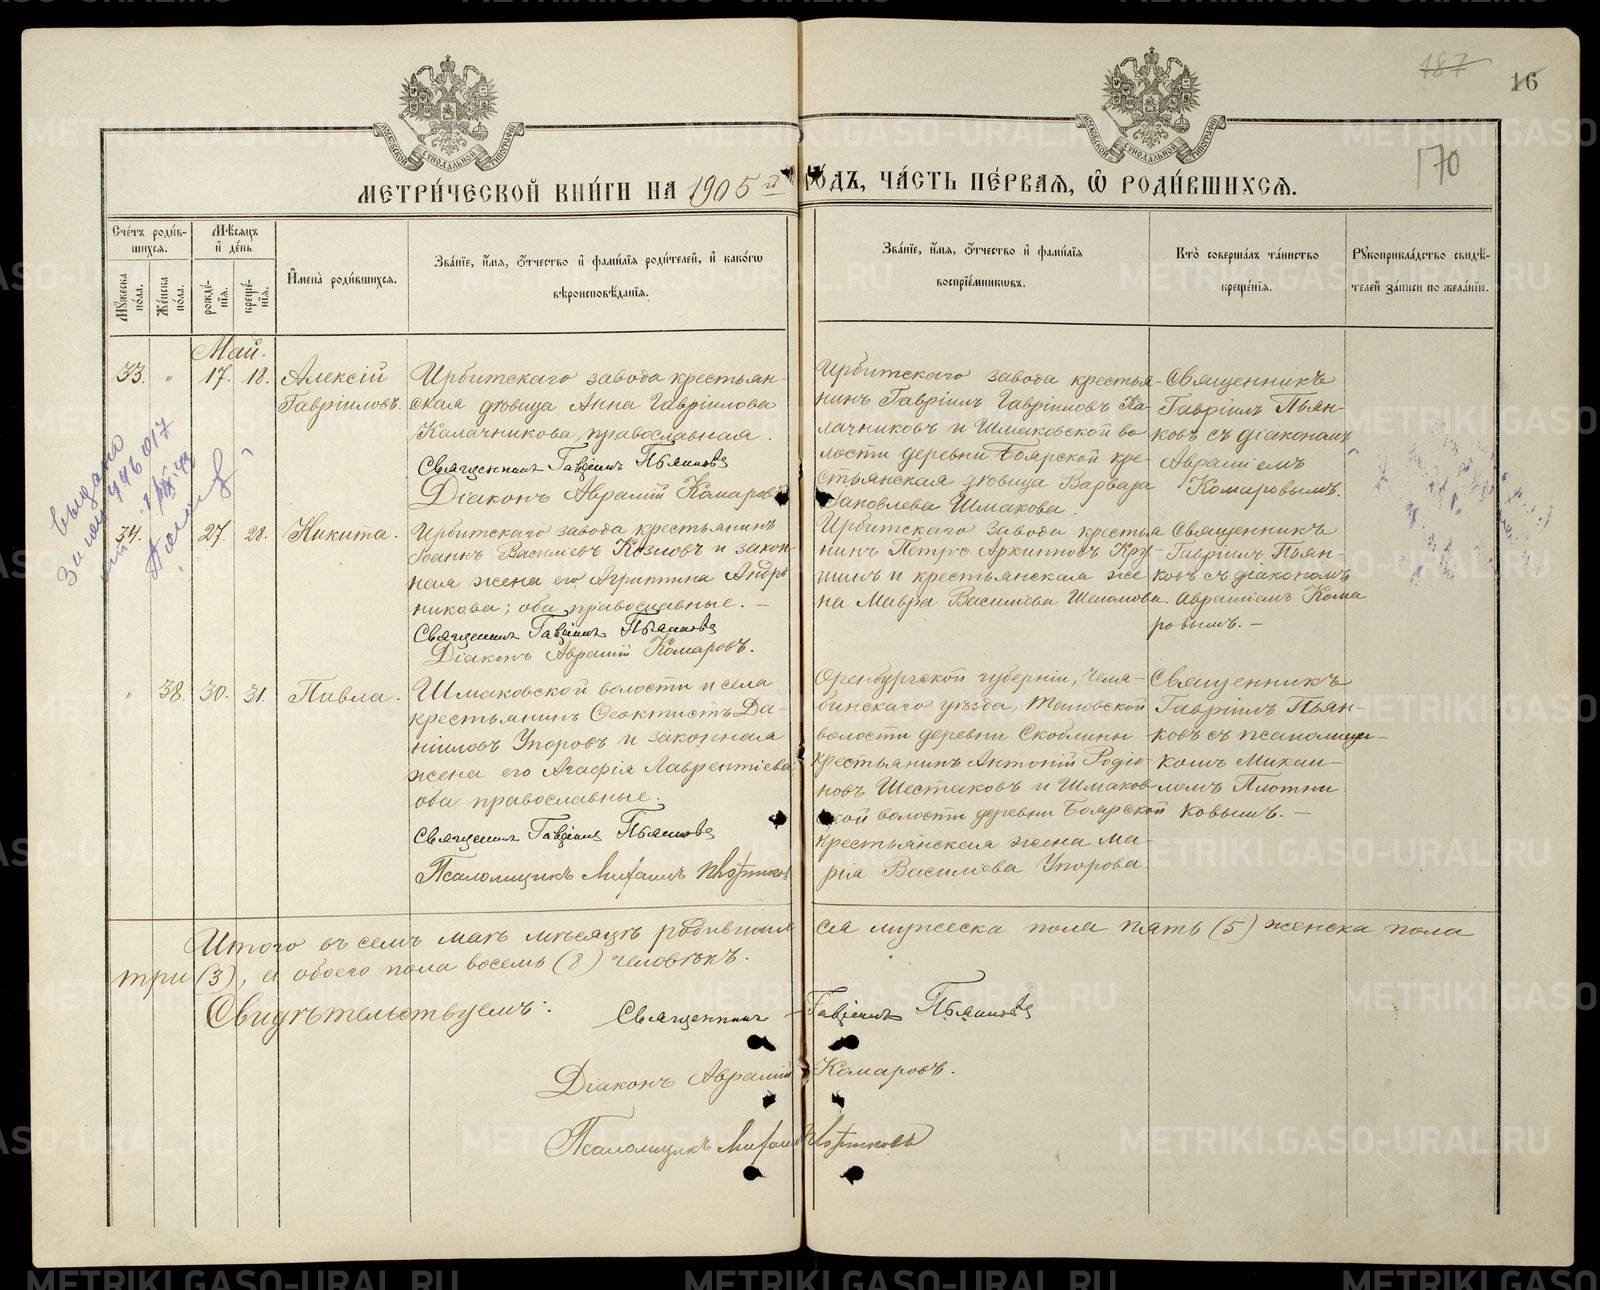 187
16
170
МЕТРИ́ЧЕСКОЙ КНИ́ГИ НА 1905 й ГОДЪ, ЧА́СТЬ ПЕ́РВАЯ, Ѡ РОДИ́ВШИХСЯ.
Сче́тъ роди́в-
шихся.
Мѣ́сяцъ
и҆ де́нь
Мꙋ́жеска по́ла.
Же́нска по́ла.
рожде́-
нїѧ.
креще́-
нїѧ.
И҆мена̀ роди́вшихся.
Зва́нїе, и҆́мѧ, ѻ҆́тчество и҆ фами́лїѧ роди́телей, и҆ како́гѡ
вѣроисповѣ́данїѧ.
Зва́нїе, и҆́мѧ, ѻ҆́тчество и҆ фами́лїѧ
воспрїе́мникѡвъ.
Кто̀ соверша́лъ та́инство
креще́нїѧ.
Рꙋкоприкла́дство свидѣ́-
телей за́писи по жела́нїю.
Май.
33. " 17. 18. Алексій
Гавріиловъ.
Ирбитскаго завода крестьян-
ская дѣвица Анна Гавріилова
Калачникова, православная.
Священникъ Гавріилъ Пьянковъ
Діаконъ Аврамій Комаровъ
Ирбитскаго завода крестья-
нинъ Гавріилъ Гавріиловъ Ка-
лачниковъ и Шмаковской во-
лости деревни Боярской кре-
стьянская дѣвица Варвара
Іаковлева Шмакова.
Священникъ
Гавріилъ Пьян-
ковъ съ діакономъ
Авраміемъ
Комаровымъ.
выдано
34. 27. 28. Никита.
Ирбитскаго завода крестьянинъ
Іоаннъ Василіевъ Козловъ и закон-
ная жена его Агриппина Андро
никова; оба православные. —
Священникъ Гавріилъ Пьянковъ
Діаконъ Аврамій Комаровъ.
Ирбитскаго завода крестья
нинъ Петръ Архипповъ
и крестьянская же
на Мавра Василіева
Священникъ
Гавріилъ Пьян-
ковъ съ діакономъ
Авраміемъ Кома
ровымъ. —
" 38. 30. 31. Павла.
Шмаковской волости и села
крестьянинъ Ѳеоктистъ Да-
ніиловъ Упоровъ и законная
жена его Агафія Лаврентіева
оба православные.
Священникъ Гавріилъ Пьянковъ
Псаломщикъ Михаилъ Плотниковъ
Оренбургской губерніи, Челя-
бинскаго уѣзда,
волости деревни Скоблины
крестьянинъ Антоній Родіо-
новъ Шестаковъ и Шмаков
ской волости деревни Боярской
крестьянская жена Ма-
рія Василіева Упорова.
Священникъ
Гавріилъ Пьян-
ковъ съ псаломщи-
комъ Михаи-
ломъ Плотни
ковымъ. —
Итого въ семъ маѣ мѣсяцѣ родившихся мужеска пола пять (5) женска пола
три (3), а обоего пола восемь (8) человѣкъ.
Свидѣтельствуемъ:
Священникъ Гавріилъ Пьянковъ
Діаконъ Аврамій Комаровъ.
Псаломщикъ Михаилъ Плотниковъ
METRIKI.GASO-URAL.RU